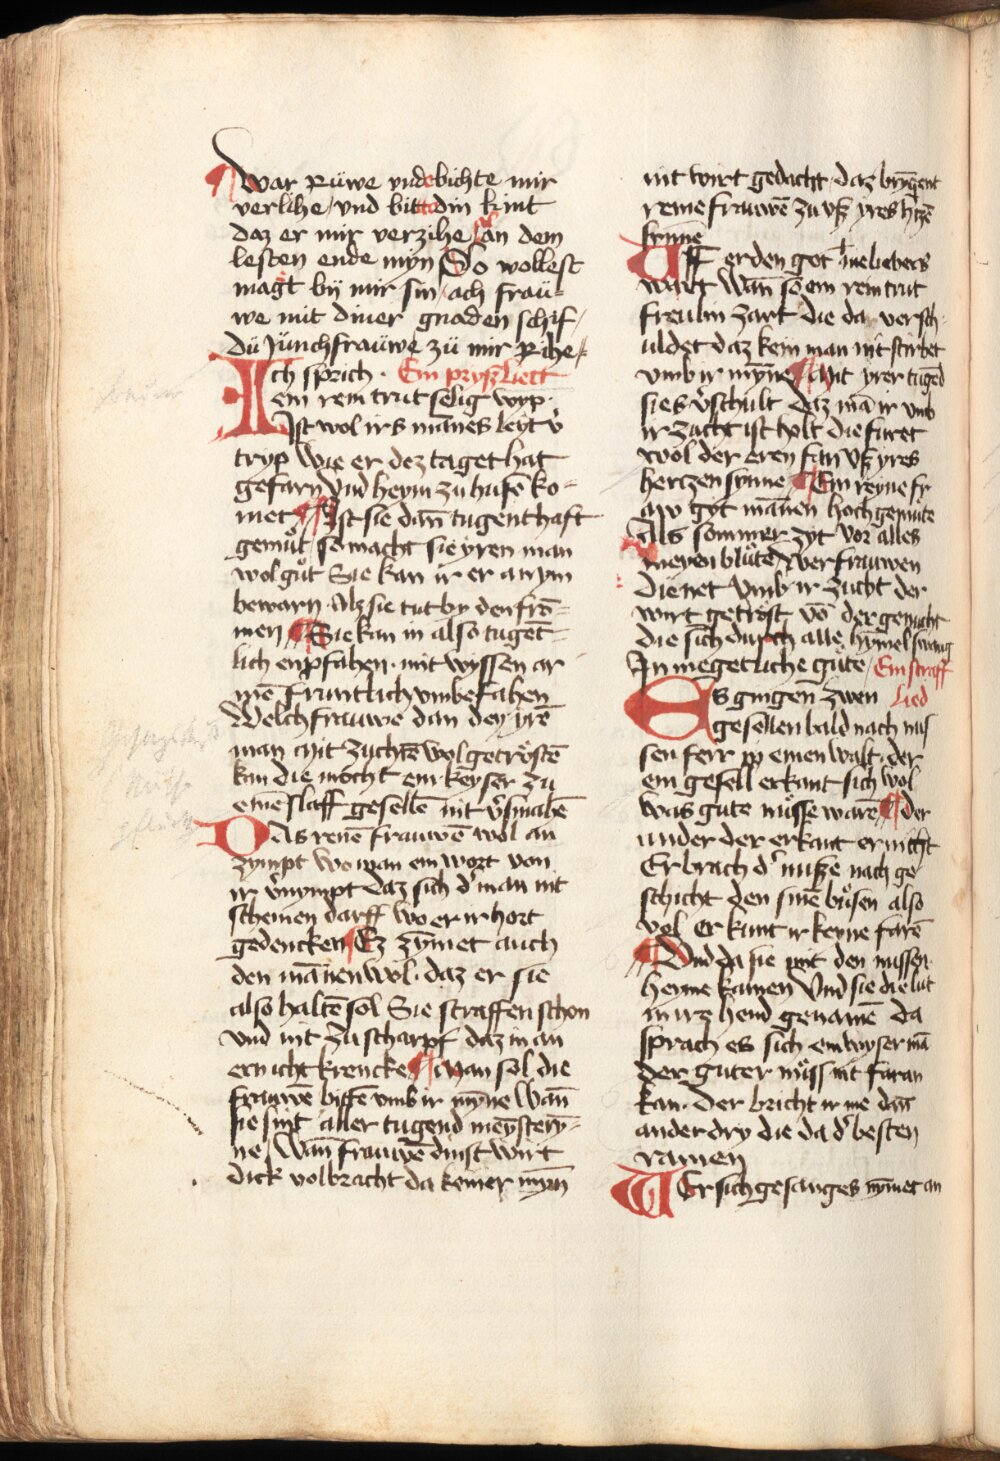 War Rüwe vnde bichte mir
verlihe / vnd bitte din kint
daz er mir verzihe / an dem
lesten ende myn So wollest
magt bij mir sin / ach fraü=
we mit diner gnaden schif /
dü Jünchfraüwe zü mir Rihe /
Ich sprich · Ein pryß liett
ein rein trut selig wyp ·
Ist wol irs mānes leyt v̓
tryp Wie er dez taget hat
gefarn vnd heym zu husē ko=
met / Ist sie dan̄ tugenthaft
gemüt / so macht sie yren man
wol gůt Sie kan ir er an ym
bewarn · Alz sie tut by den frō=
men Sie kan in also tugēt=
lich enpfahen · mit wyssen ar
men fruntlich vmbefahen
Welch frauwe dan den yrē
man Mit zuchtē wol getröstē
kan die mocht eim keyser zu
einē slaff gesellē nit v̓smahē
Das reinē frauwē wol an
zympt Wo man ein wort von
ir v̓nympt daz sich d̓ man nit
schemen darff wo er ir hort
gedencken Ez zȳmet auch
den mānen wol · daz er sie
also haltē sol Sie straffen schon
vnd nit zu scharpf daz man
ern icht krencke Man sol die
frauwē biſſē vmb ir mȳne Wan̄
sie sint aller tugend meystery=
ne / Wan̄ frauwē dinst wirt
dick volbracht da keiner mȳn
nit wirt gedacht · daz bryngent
reine frauwē zu vß yres h̓tzē
synne
Uff erden got nie liebers
wart Wan̄ so ein rein trut
freulin zart die da versch=
uldet daz kein man nit stirbet
vmb ir mȳne Mit yrer tugēd
sie es v̓schult daz mā ir vmb
ir zucht ist holt die furet
wol der eren fan vß yres
hertzen synne Ein reyne fr
aw gyt mānen hoch gemüte
Als sommer zyt vor alles
meyen blütē / Wer frauwen
dienet vmb ir zucht der
wirt getröst vō der genucht
die sich durch alle hymel swang
In megetliche güte / Ein straff
Lied
Es gingen zwen
gesellen bald nach nus
sen ferr in einen walt · der
ein gesell erkant sich wol
was gute nüsse warē der
ander der erkant er nicht
Er brach d̓ nusse nach ge
schicht den sinē büsen also
vol er kunt ir keyne farē
Vnd da sie mit den nussen
heyme kamen Vnd sie die lut
in irz hend genamē da
sprach es sich ein wyser mā
der guter nüss nit faran
kan · Der bricht ir nie dan̄
ander dry die da d̓ besten
ramen
Wer sich gesanges nȳmet an